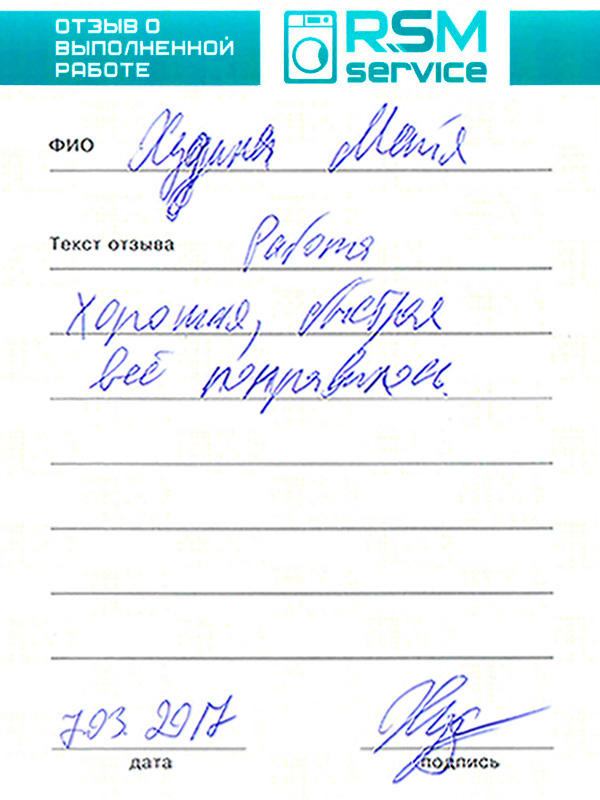 ОТЗЫВ О
ВЫПОЛНЕННОЙ
РАБОТЕ
RSM
service
ФИО Худина Майя
Текст отзыва Работа
хорошая, быстрая
всё понравилось.
7.03. 2017
дата подпись